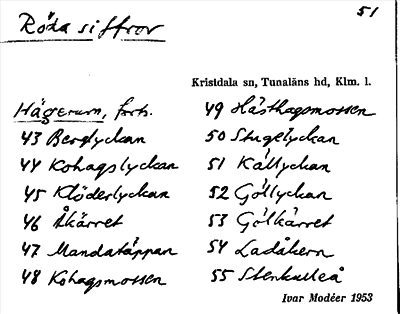 51
Röda siffror
Kristdala sn, Tunaläns hd, Klm. l.
Hägerum, forts.
43 Berglyckan
44 Kohagslyckan
45 Klöderlyckan
46 Åkärret
47 Mandatäppan
48 Kohagsmossen
49 Hästhagsmossen
50 Stugelyckan
51 Kållyckan
52 Göllyckan
53 Gölkärret
54 Ladåkern
55 Stenkulleå
Ivar Modéer 1953